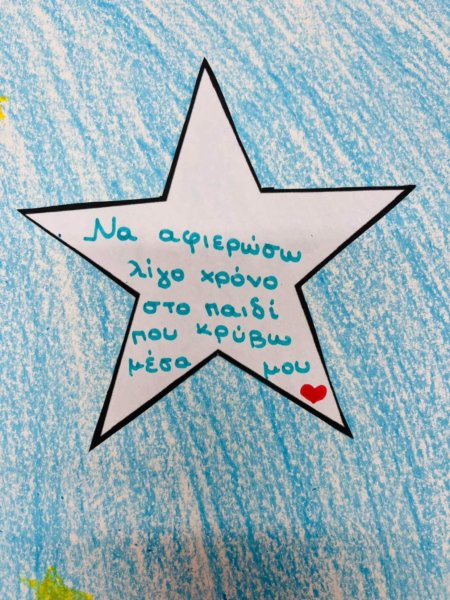 Να αφιερώσω
λίγο χρόνο
στο παιδί
που κρύβω
μέσα μου